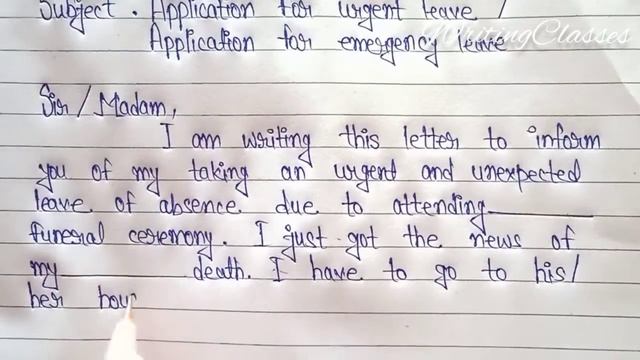 Subject. Application for urgent leave /
Application for emergency leave
WritingClasses
Sir / Madam,
I am writing this letter to inform
you of my taking an urgent and unexpected
leave of absence due to attending______
funeral ceremony. I just got the news of
my ______ death. I have to go to his/
her hou